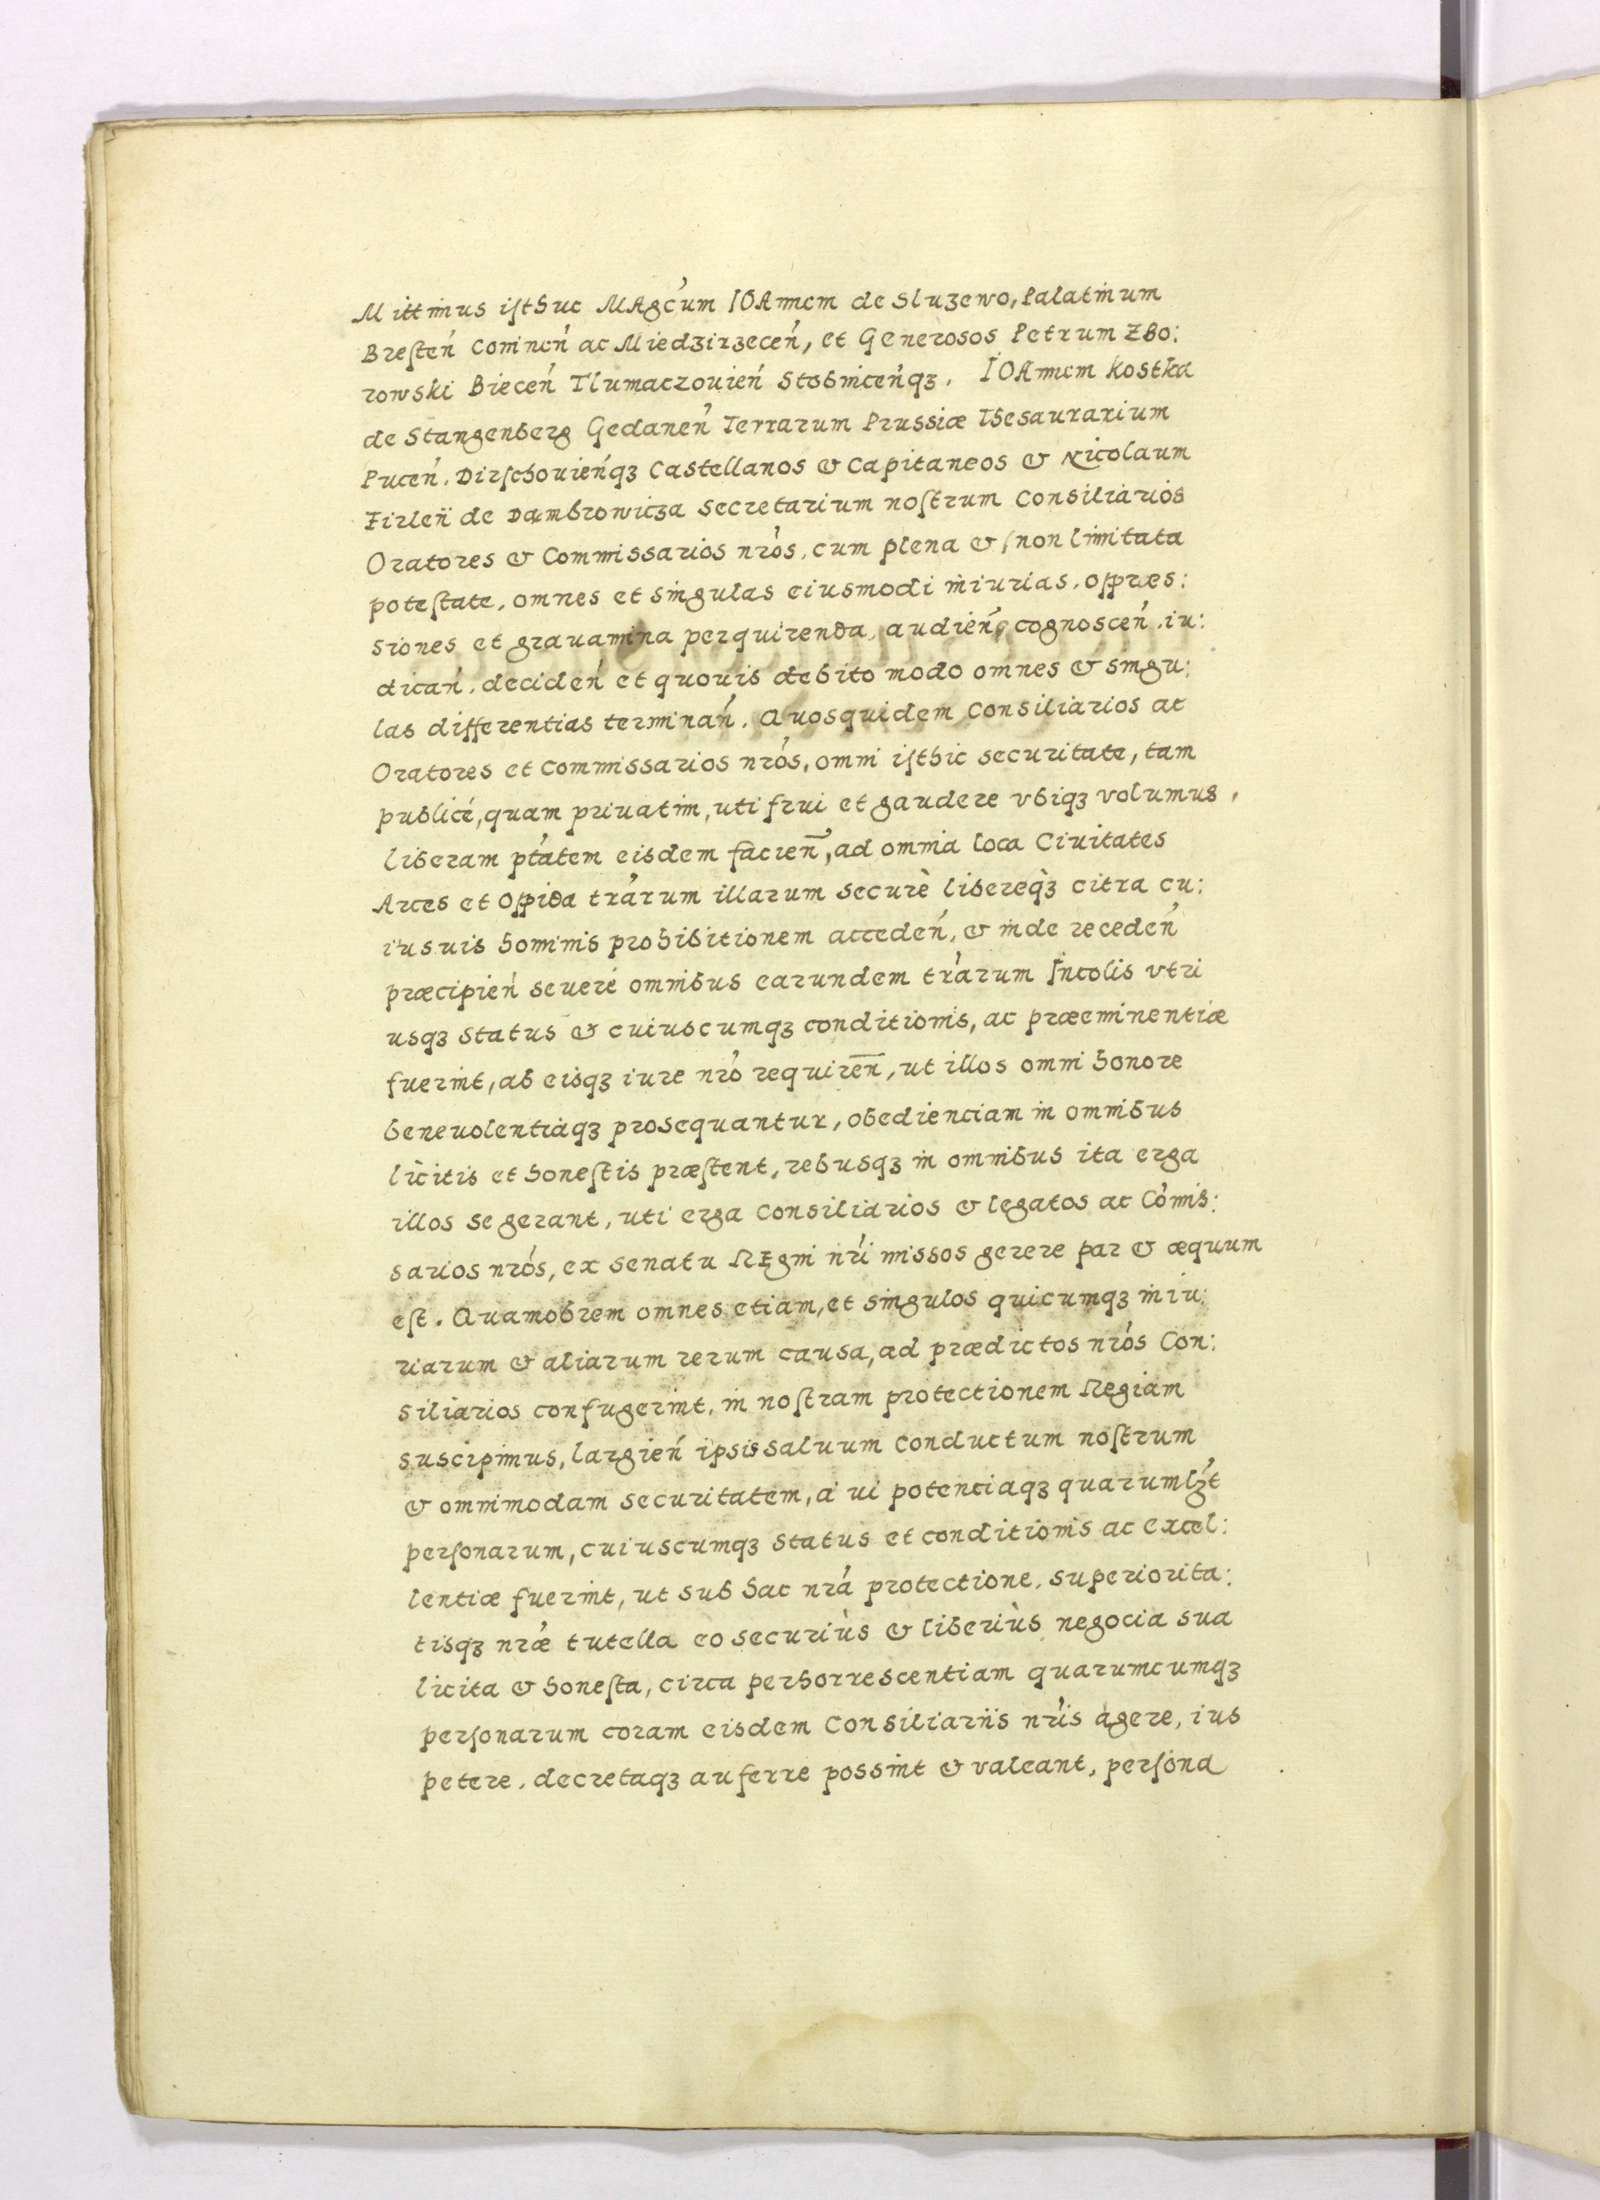 Mittimus isthuc MAgcum IOAnnem de Sluzewo, Palatinum
Bresten Coninen ac Miedzirzecen, et Generosos Petrum ZBo:
rowski Biecen Tlumaczouien Stobnicenqz. IOAnnem Kostka
de Stangenberg Gedanen Terrarum Prussiæ Thesaurarium
Pucen. Dirschouienqz Castellanos & Capitaneos & Nicolaum
Firleÿ de Dambrowicza Secretarium nostrum Consiliarios
Oratores & Commissarios nros, cum plena & non limitata
potestate, omnes et singulas eiusmodi iniurias, oppræs:
siones et grauamina perquirenda, audien, cognoscen, iu:
dican, deciden et quouis debito modo omnes & singu:
las differentias terminan. Quosquidem Consiliarios ac
Oratores et Commissarios nros, omni isthic securitate, tam
publicé, quam priuatim, uti frui et gaudere vbiqz volumus,
liberam ptatem eisdem facien, ad omnia loca Ciuitates
Arces et Oppida trarum illarum securè libereqz citra cu:
iusuis hominis prohibitionem acceden, & inde receden
præcipien seueré omnibus earundem trarum Incolis vtri
usqz status & cuiuscumqz conditionis, ac præeminentiæ
fuerint, ab eisqz iure nro requiren, ut illos omni honore
beneuolentiaqz prosequantur, obedienciam in omnibus
licitis et honestis præstent, rebusqz in omnibus ita erga
illos se gerant, uti erga Consiliarios & legatos ac Comis:
sarios nros, ex senatu REgni nri missos gerere par & æquum
est. Quamobrem omnes etiam, et singulos quicumqz iniu:
riarum & aliarum rerum causa, ad prædictos nros Con:
siliarios confugerint, in nostram protectionem Regiam
suscipimus, largien ipsis saluum conductum nostrum
& omnimodam securitatem, a ui potenciaqz quarumlzt
personarum, cuiuscumqz status et conditionis ac excel:
lentiæ fuerint, ut sub hac nra protectione, superiorita:
tisqz nræ tutella eo securiùs & liberiùs negocia sua
licita & honesta, circa perhorrescentiam quarumcumqz
personarum coram eisdem Consiliariis nris agere, ius
petere, decretaqz auferre possint & valeant, persona